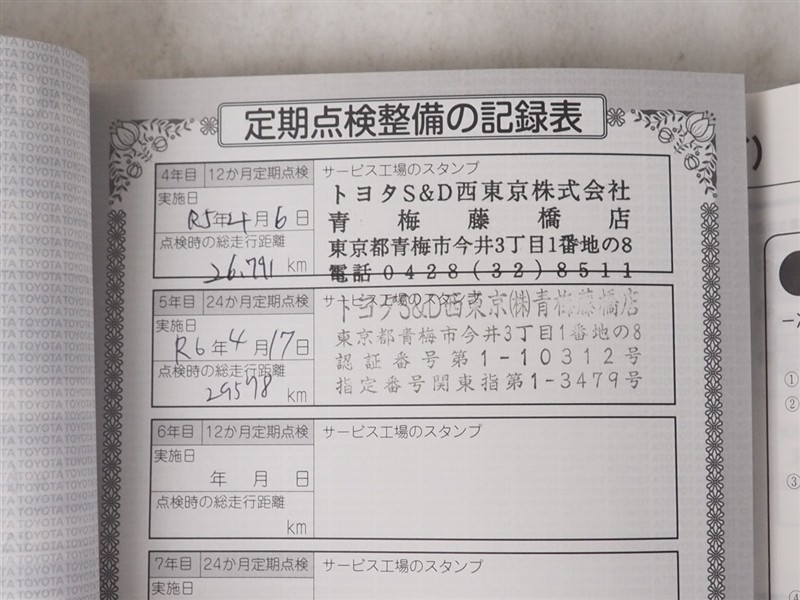 定期点検整備の記録表
4年目 12か月定期点検 サービス工場のスタンプ
実施日
R5年4月6日
点検時の総走行距離
26,791 km
トヨタS&D西東京株式会社
青梅藤橋店
東京都青梅市今井3丁目1番地の8
電話0428(32)8511
5年目 24か月定期点検 サービス工場のスタンプ
実施日
R6年4月17日
点検時の総走行距離
29578 km
トヨタS&D西東京㈱青梅藤橋店
東京都青梅市今井3丁目1番地の8
認証番号第1-10312号
指定番号関東指第1-3479号
6年目 12か月定期点検 サービス工場のスタンプ
実施日
年 月 日
点検時の総走行距離
km
7年目 24か月定期点検 サービス工場のスタンプ
実施日
①
②
③